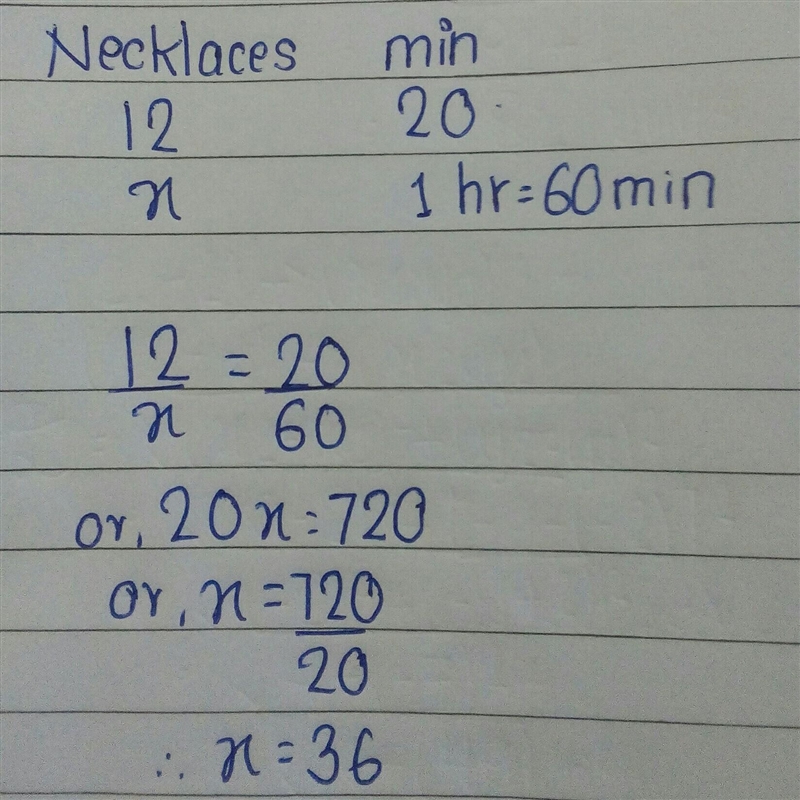 Necklaces min
12 20
x 1 hr=60min
12/x = 20/60
or, 20x=720
or, x=720/20
∴ x=36